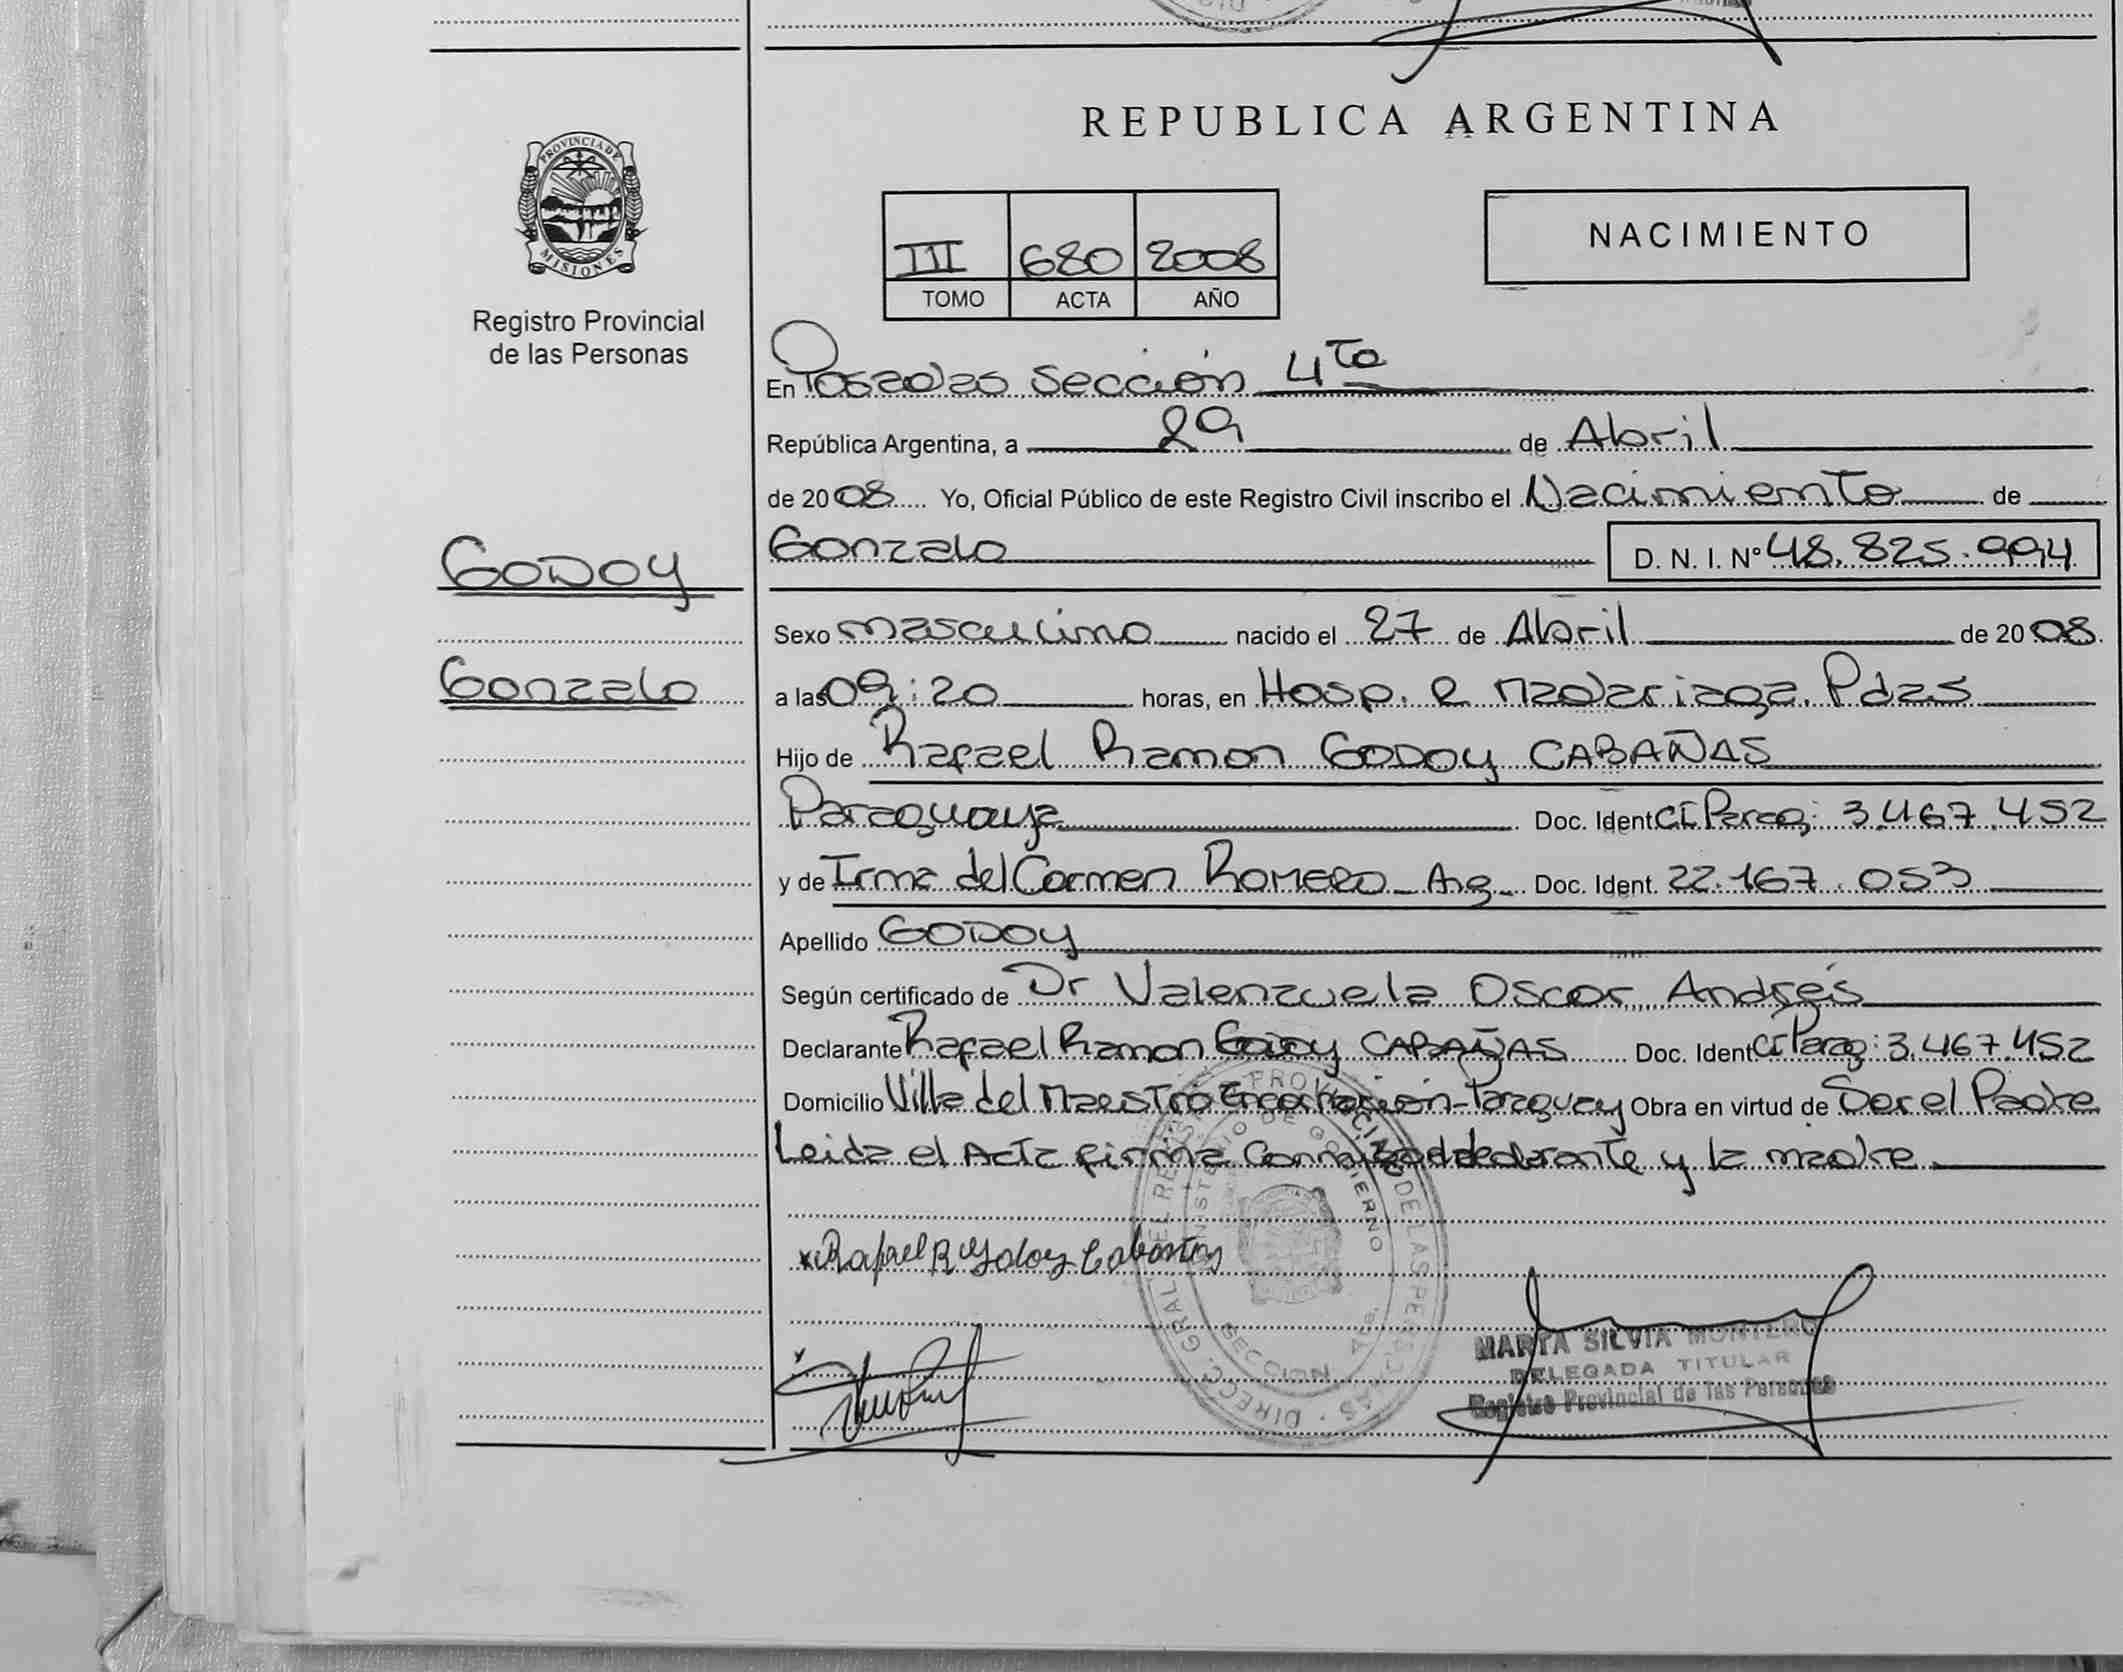 REPUBLICA ARGENTINA
PROVINCIA DE
MISIONES
Registro Provincial
de las Personas
III 680 2008
TOMO ACTA AÑO
NACIMIENTO
En Posadas Sección 4ta
República Argentina, a 29 de Abril
de 2008 Yo, Oficial Público de este Registro Civil inscribo el Nacimiento de
GODOY
Gonzalo D. N. I. Nº 48.825.994
Sexo masculino nacido el 27 de Abril de 2008
Gonzalo
a las 09:20 horas, en Hosp. R Madariaga. Pdas
Hijo de Rafael Ramon GODOY CABAÑAS
Paraguaya Doc. Ident CI Parag: 3.467.452
y de Irma del Carmen ROMERO - Arg - Doc. Ident. 22.167.053
Apellido GODOY
Según certificado de Dr Valenzuela Oscar Andrés
Declarante Rafael Ramon Godoy CABAÑAS Doc. Ident CI Parag: 3.467.452
Domicilio Villa del Maestro Encarnación-Paraguay Obra en virtud de Ser el Padre
Leida el Acta firma Conmigo el declarante y la madre
x Rafael R Godoy Cabañas
MARTA SILVIA MONTERO
DELEGADA TITULAR
Registro Provincial de las Personas
SECCION 4ta.